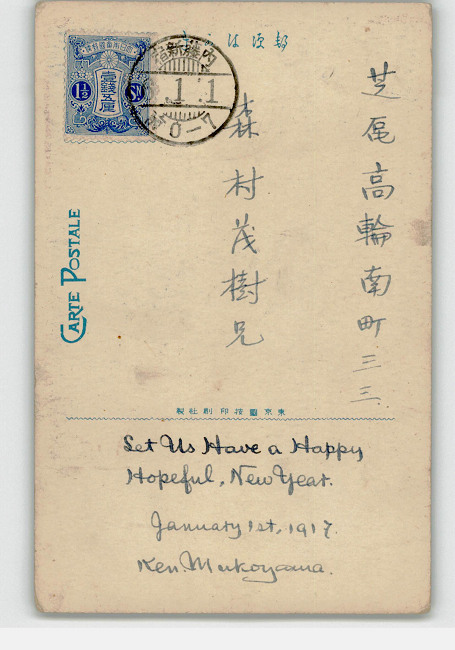 郵便はがき
大日本帝國郵便
壹錢五厘
1½ Sn
内藤新宿
.1.1
0-7
芝區高輪南町三三
森村茂樹兄
CARTE POSTALE
東京圖按印刷社製
Let Us Have a Happy
Hopeful, New Year.
January 1st, 1917.
Ken. Mukoyama.